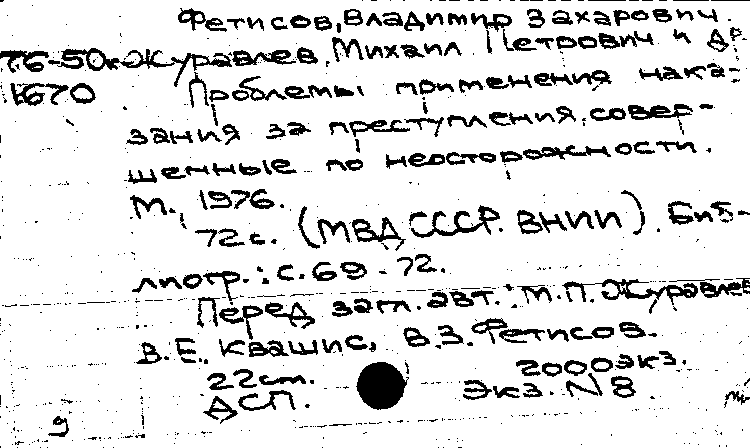 Фетисов, Владимир Захарович.
76-50к Журавлев, Михаил Петрович и др.
1670 Проблемы применения нака-
зания за преступления, совер-
шенные по неосторожности.
М., 1976.
72 с. (МВД СССР. ВНИИ). Биб-
лиогр.: с. 69-72.
Перед загл. авт.: М.П. Журавлев
В.Е. Квашис, В.З. Фетисов.
22см. 2000экз.
ДСП. Экз. N 8.
9